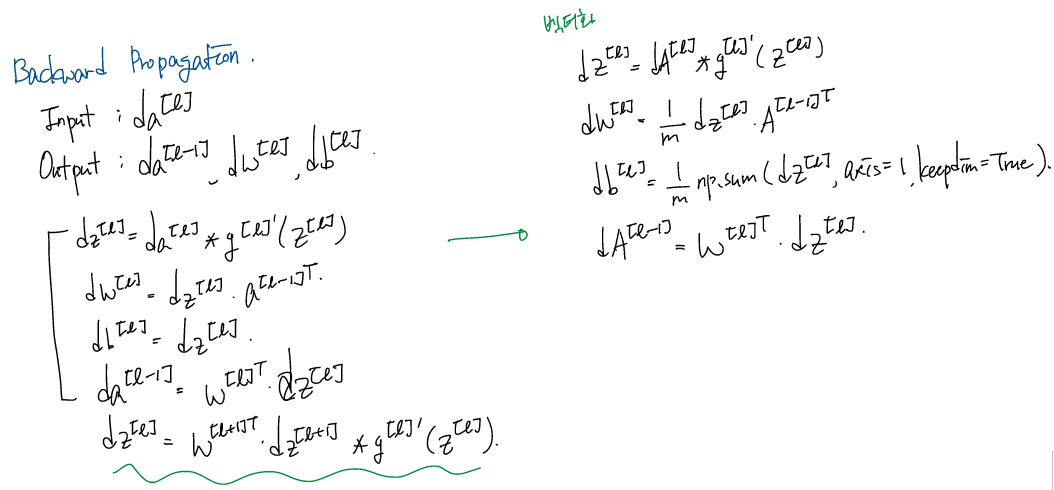 Backward Propagation.
Input : da^[l]
Output : da^[l-1], dw^[l], db^[l].
dz^[l] = da^[l] * g^[l]'(z^[l])
dw^[l] = dz^[l] · a^[l-1]T.
db^[l] = dz^[l].
da^[l-1] = w^[l]T · dz^[l]
dz^[l] = w^[l+1]T · dz^[l+1] * g^[l]'(z^[l]).
벡터화
dz^[l] = dA^[l] * g^[l]'(z^[l])
dw^[l] = 1/m dz^[l] · A^[l-1]T
db^[l] = 1/m np.sum(dz^[l], axis=1, keepdim=True).
dA^[l-1] = w^[l]T · dz^[l].